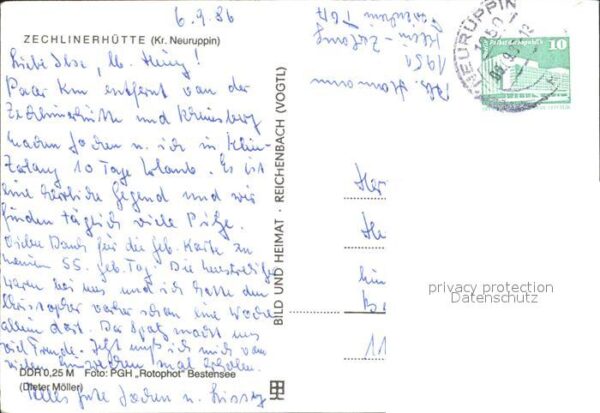 6.9.86
ZECHLINERHÜTTE (Kr. Neuruppin)
Liebe Ilse, lb. Heinz!
Paar Km entfernt von der
Zechlinerhütte und Rheinsberg
machen Jochen u. ich in Klein-
Zerlang 10 Tage Urlaub. Es ist
eine herrliche Gegend und wir
finden täglich viele Pilze.
Vielen Dank für die Geb. Karte zu
meinem 55. Geb. Tag. Die
waren bei uns und ich hatte den
Christopher vorher schon eine Woche
allein dort. Der Spatz macht uns
viel Freude. Jetzt muß ich mich von
vielen mal erholen.
DDR 0,25 M Foto: PGH „Rotophot" Bestensee
(Dieter Möller)
Alles Gute Jochen u. Sissy
BILD UND HEIMAT · REICHENBACH (VOGTL)
Abs. Hamann
1951
Klein-Zerlang
NEURUPPIN
1950
10
privacy protection
Datenschutz
11